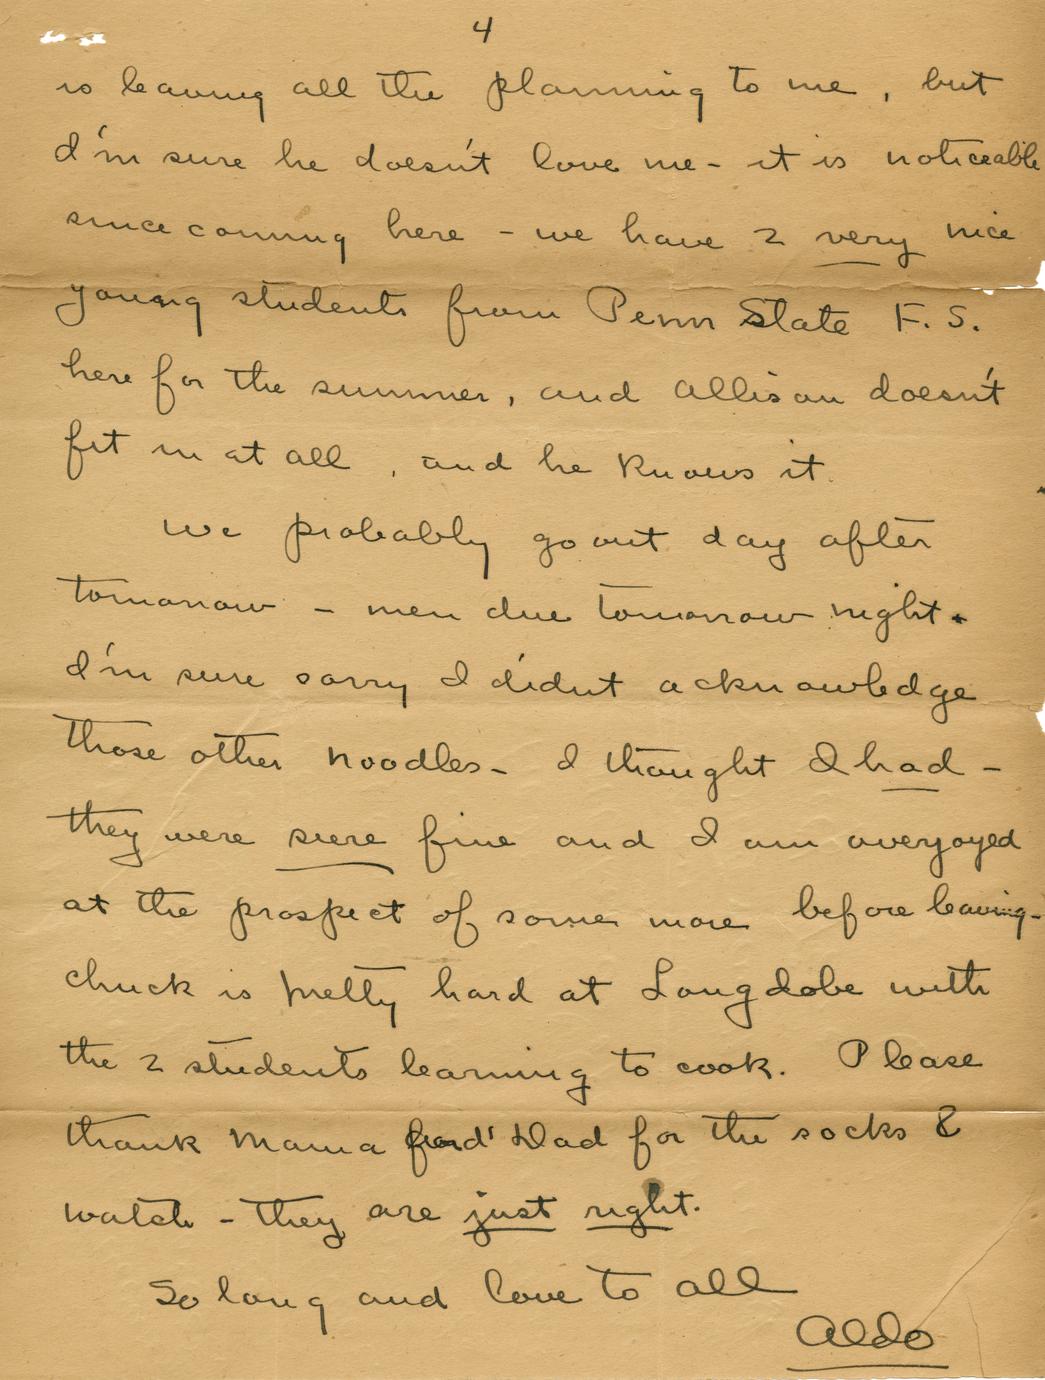 4
is leaving all the planning to me, but
I'm sure he doesn't love me - it is noticeable
since coming here - we have 2 very nice
young students from Penn State F.S.
here for the summer, and Allison doesn't
fit in at all, and he knows it.
We probably go out day after
tomorrow - men due tomorrow night.
I'm sure sorry I didn't acknowledge
those other noodles - I thought I had -
they were sure fine and I am overjoyed
at the prospect of some more before leaving -
chuck is pretty hard at Long dobe with
the 2 students learning to cook. Please
thank Mama and Dad for the socks &
watch - they are just right.
So long and love to all
Aldo